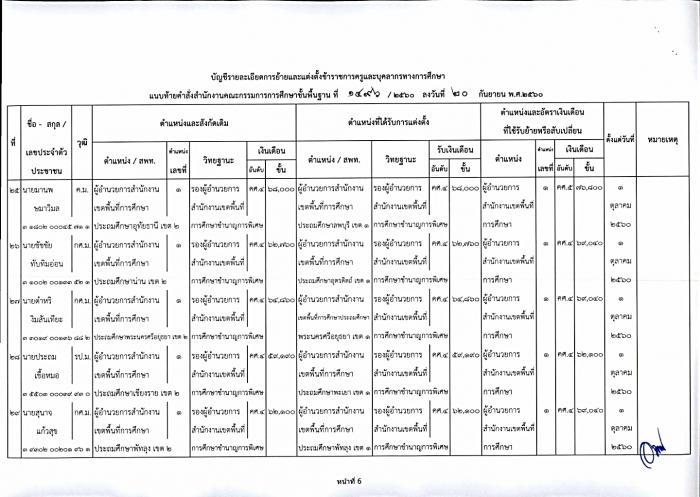 บัญชีรายละเอียดการย้ายและแต่งตั้งข้าราชการครูและบุคลากรทางการศึกษา
แนบท้ายคำสั่งสำนักงานคณะกรรมการการศึกษาขั้นพื้นฐาน ที่ ๑๔๙๖ / ๒๕๖๐ ลงวันที่ ๒๐ กันยายน พ.ศ.๒๕๖๐
ที่ ชื่อ - สกุล / เลขประจำตัวประชาชน วุฒิ ตำแหน่งและสังกัดเดิม ตำแหน่งที่ได้รับการแต่งตั้ง ตำแหน่งและอัตราเงินเดือนที่ใช้รับย้ายหรือสับเปลี่ยน ตั้งแต่วันที่ หมายเหตุ
ตำแหน่ง / สพท. ตำแหน่งเลขที่ วิทยฐานะ เงินเดือน อันดับ ขั้น ตำแหน่ง / สพท. วิทยฐานะ รับเงินเดือน อันดับ ขั้น ตำแหน่ง ตำแหน่งเลขที่ เงินเดือน อันดับ ขั้น
๒๕ นายมานพ ค.ม. ผู้อำนวยการสำนักงาน ๑ รองผู้อำนวยการ คศ.๔ ๖๘,๐๐๐ ผู้อำนวยการสำนักงาน รองผู้อำนวยการ คศ.๔ ๖๘,๐๐๐ ผู้อำนวยการ ๑ คศ.๕ ๗๖,๘๐๐ ๑
ษมาวิมล เขตพื้นที่การศึกษา สำนักงานเขตพื้นที่ เขตพื้นที่การศึกษา สำนักงานเขตพื้นที่ สำนักงานเขตพื้นที่ ตุลาคม
ประถมศึกษาอุทัยธานี เขต ๒ การศึกษาชำนาญการพิเศษ ประถมศึกษาลพบุรี เขต ๑ การศึกษาชำนาญการพิเศษ การศึกษา ๒๕๖๐
๒๖ นายชัชชัย กศ.ม. ผู้อำนวยการสำนักงาน ๑ รองผู้อำนวยการ คศ.๔ ๖๒,๗๖๐ ผู้อำนวยการสำนักงาน รองผู้อำนวยการ คศ.๔ ๖๒,๗๖๐ ผู้อำนวยการ ๑ คศ.๔ ๖๙,๐๔๐ ๑
ทับทิมอ่อน เขตพื้นที่การศึกษา สำนักงานเขตพื้นที่ เขตพื้นที่การศึกษา สำนักงานเขตพื้นที่ สำนักงานเขตพื้นที่ ตุลาคม
ประถมศึกษาน่าน เขต ๒ การศึกษาชำนาญการพิเศษ ประถมศึกษาอุตรดิตถ์ เขต ๑ การศึกษาชำนาญการพิเศษ การศึกษา ๒๕๖๐
๒๗ นายดำหริ กศ.ม. ผู้อำนวยการสำนักงาน ๑ รองผู้อำนวยการ คศ.๔ ๖๔,๘๖๐ ผู้อำนวยการสำนักงาน รองผู้อำนวยการ คศ.๔ ๖๔,๘๖๐ ผู้อำนวยการ ๑ คศ.๔ ๖๙,๐๔๐ ๑
งิมสันเทียะ เขตพื้นที่การศึกษา สำนักงานเขตพื้นที่ เขตพื้นที่การศึกษาประถมศึกษา สำนักงานเขตพื้นที่ สำนักงานเขตพื้นที่ ตุลาคม
ประถมศึกษาพระนครศรีอยุธยา เขต ๒ การศึกษาชำนาญการพิเศษ พระนครศรีอยุธยา เขต ๑ การศึกษาชำนาญการพิเศษ การศึกษา ๒๕๖๐
๒๘ นายประถม รป.ม. ผู้อำนวยการสำนักงาน ๑ รองผู้อำนวยการ คศ.๔ ๕๙,๑๙๐ ผู้อำนวยการสำนักงาน รองผู้อำนวยการ คศ.๔ ๕๙,๑๙๐ ผู้อำนวยการ ๑ คศ.๔ ๖๒,๑๐๐ ๑
เชื้อหมอ เขตพื้นที่การศึกษา สำนักงานเขตพื้นที่ เขตพื้นที่การศึกษา สำนักงานเขตพื้นที่ สำนักงานเขตพื้นที่ ตุลาคม
ประถมศึกษาเชียงราย เขต ๒ การศึกษาชำนาญการพิเศษ ประถมศึกษาพะเยา เขต ๑ การศึกษาชำนาญการพิเศษ การศึกษา ๒๕๖๐
๒๙ นายสุนาจ กศ.ม. ผู้อำนวยการสำนักงาน ๑ รองผู้อำนวยการ คศ.๔ ๖๒,๑๐๐ ผู้อำนวยการสำนักงาน รองผู้อำนวยการ คศ.๔ ๖๒,๑๐๐ ผู้อำนวยการ ๑ คศ.๔ ๖๙,๐๔๐ ๑
แก้วสุข เขตพื้นที่การศึกษา สำนักงานเขตพื้นที่ เขตพื้นที่การศึกษา สำนักงานเขตพื้นที่ สำนักงานเขตพื้นที่ ตุลาคม
ประถมศึกษาพัทลุง เขต ๒ การศึกษาชำนาญการพิเศษ ประถมศึกษาพัทลุง เขต ๑ การศึกษาชำนาญการพิเศษ การศึกษา ๒๕๖๐
หน้าที่ 6